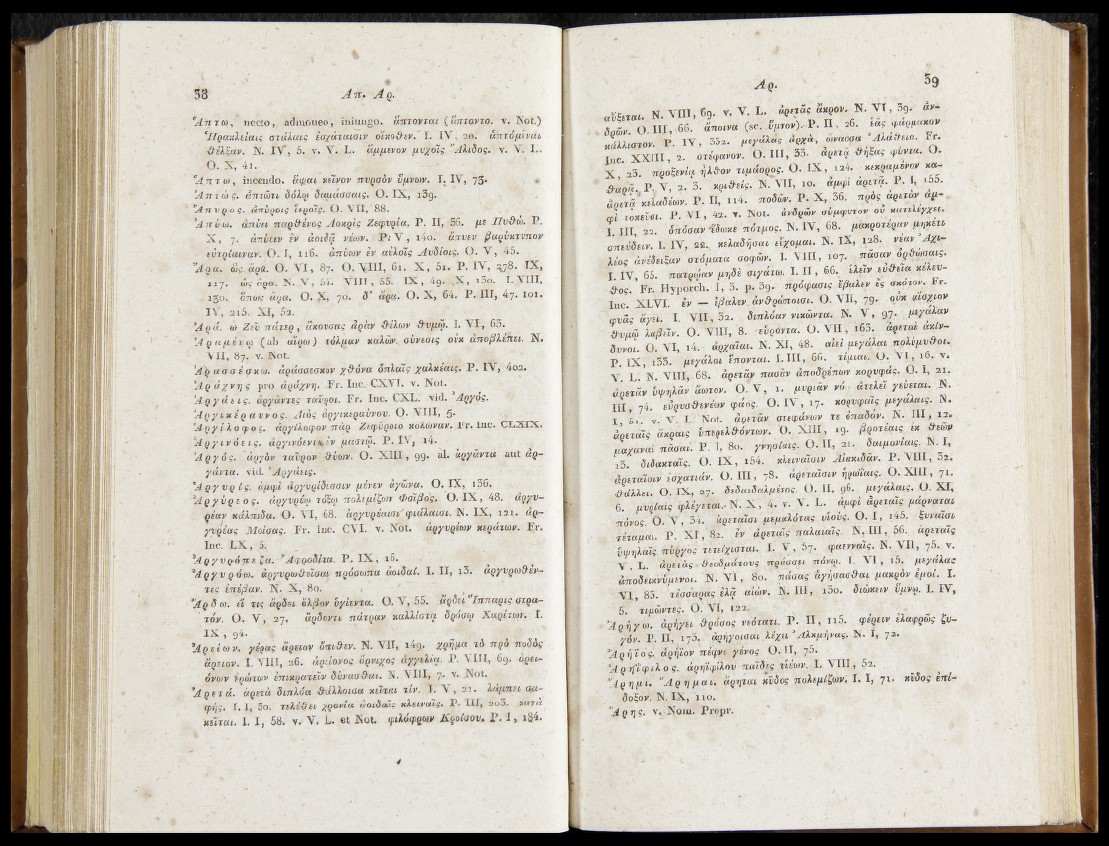 38 Απ. Αρ.
Ἅπτω, necto, admoneo, iniungo. ἅπτονται (ἅπτοντο. v. Not.)
Ἡρακλείαις στάλαις ἐσχάταισιν οἴκοθεν. I. IV, 20. ἁπτόμεναι
θέλξαν. N. IV, 5. v. V. L. ἅμμενον μυχοῖς Ἄλιδος. v. V. L.
O. X, 41.
Ἅπτω, incendo. ἅψαι κεῖνον πυρσὸν ὕμνων. I. IV, 73.
Ἀπτώς. ἀπτῶτι δόλῳ δαμάσσαις. O. IX, 139.
Ἄπυρος. ἀπύροις ἱεροῖς. O. VII, 88.
Ἀπύω. ἀπύει παρθένος Λοκρὶς Ζεφυρία. P. II, 36. με Πυθώ. P.
X, 7. ἀπύειν ἐν ἀοιδᾷ νέων. P. V, 140. ἄπυεν βαρύκτυπον
εὐτρίαιναν. O. I, 116. ἀπύων ἐν αὐλοῖς Λυδίοις. O. V, 45.
Ἄρα. ὣς ἄρα. O. VI, 87. O. VIII, 61. X, 51. P. IV, 278. IX,
117. ὣς ἄρα. N. V, 54. VIII, 55. IX, 49. X, 130. I. VIII,
130. ὅπως ἄρα. O. X, 70. δʼ ἄρα. O. X, 64. P. III, 47. 101.
IV, 215. XI, 52.
Ἀρά. ὦ Ζεῦ πάτερ, ἄκουσας ἀρὰν θέλων θυμῷ. I. VI, 63.
Ἀραμένῳ (ab αἴρω) τόλμαν καλῶν. σύνεσις οὐκ ἀποβλέπει. N.
VII, 87. v. Not.
Ἀρασσέσκω. ἀράσσεσκον χθόνα ὁπλαῖς χαλκέαις. P. IV, 402.
Ἀράχνης pro ἀράχνη. Fr. Inc. CXVI. v. Not.
Ἀργάεις. ἀργᾶντες ταῦροι. Fr. Inc. CXL. vid. Ἀργός.
Ἀργικέραυνος. Διὸς ἀργικεραύνου. O. VIII, 5.
Ἀργίλοφος. ἀργίλοφον πὰρ Ζεφυρίῳ κολώναν. Fr. Inc. CLXIX.
Ἀργινόεις. ἀργινόεντι ἐν μαστῷ. P. IV, 14.
Ἀργός. ἀργὸν ταῦρον θύων. O. XIII, 99. al. ἀργᾶντα aut ἀρ-
γάντα. vid. Ἀργάεις.
Ἀργυρίς. ἀμφὶ ἀργυρίδεσσιν μένεν ἀγῶνα. O. IX, 136.
Ἀργύρεος. ἀργυρέῳ τόξῳ πολεμίζων Φοῖβος. O. IX, 48. ἀργυ-
ρέαν κάλπιδα. O. VI, 68. ἀργυρέαισι φιάλαισι. N. IX, 121. ἀρ-
γυρέας Μοίσας. Fr. Inc. CVI. v. Not. ἀργυρέων κεράτων. Fr.
Inc. LX, 5.
Ἀργυρόπεζα. Ἀφροδίτα. P. IX, 16.
Ἀργυρόω. ἀργυρωθεῖσαι πρόσωπα ἀοιδαί. I. II, 13. ἀργυρωθέν-
τες ἐπέβαν. N. X, 80.
Ἄρδω. εἴ τις ἄρδει ὄλβον ὑγίεντα. O. V, 55. ἄρδει Ἵππαρις στρα-
τόν. O. V, 27. ἄρδοντι πάτραν καλλίστᾳ δρόσῳ Χαρίτων. I.
IX, 94.
Ἀρείων. γέρας ἄρειον ὄπιθεν. N. VII, 149. χρῆμα τὸ πρὸ ποδὸς
ἄρειον. I. VIII, 26. ἀρείονος ὄρνιχος ἀγγελίᾳ. P. VIII, 69. ἀρει-
όνων ἐρώτων ἐπικρατεῖν δύνασθαι. N. VIII, 7. v. Not.
Ἀρετά. ἀρετὰ διπλόα θάλλοισα κεῖται τίν. I. V, 21. λάμπει σα-
φής. I. I, 30. τελέθει χρονία ἀοιδαῖς κλειναῖς. P. III, 203. κατὰ
κεῖται. I. I, 58. v. V. L. et Not. φιλόφρων Κροίσου. P. I, 184.
Αρ. 39
αὔξεται. N. VIII, 69. v. V. L. ἀρετᾶς ἄκρον. N. VI, 39. ἀν-
δρῶν. O. III, 66. ἄποινα (sc. ὕμνον). P. II, 26. ἑᾶς φάρμακον
κάλλιστον. P. IV, 332. μεγάλας ἀρχά, ὤνασσα Ἀλάθειο. Fr.
Inc. XXIII, 2. στέφανον. O. III, 33. ἀρετᾷ θήξας φύντα. O.
X, 23. προξενίᾳ ἦλθον τιμάορος. O. IX, 124. κεκραμένον κα-
θαρᾷ. P. V, 2. 3. κριθείς. N. VII, 10. ἀμφὶ ἀρετᾷ. P. I, 155.
ἀρετᾷ κελαδέων. P. II, 114. ποδῶν. P. X, 36. πρὸς ἀρετὰν ἀμ-
φὶ τοκεῦσι. P. VI, 42. v. Not. ἀνδρῶν σύμφυτον οὐ κατελέγχει.
I. III, 22. ὁπόσαν ἔδωκε πότμος. N. IV, 68. μακροτέραν μηκέτι
σπεύδειν. I. IV, 22. κελαδῆσαι εὔχομαι. N. IX, 128. νέαν Ἀχι-
λέος ἀνέδειξαν στόματα σοφῶν. I. VIII, 107. πᾶσαν ὀρθώσαις.
I. IV, 65. πατρῴαν μηδὲ σιγάτω. I. II, 66. ἑλεῖν εὐθεῖα κέλευ-
θος. Fr. Hyporch. I, 3. p. 39. πρόφασις ἔβαλεν ἐς σκότον. Fr.
Inc. XLVI. ἐν — ἔβαλεν ἀνθρώποισι. O. VII, 79. οὐκ αἴσχιον
φυᾶς ἄγει. I. VII, 32. διπλόαν νικῶντα. N. V, 97. μεγάλαν
θυμῷ λαβεῖν. O. VIII, 8. εὑρόντα. O. VII, 163. ἀρεταὶ ἀκίν-
δυνοι. O. VI, 14. ἀρχαῖαι. N. XI, 48. αἰεὶ μεγάλαι πολύμυθοι.
P. IX, 133. μεγάλαι ἕπονται. I. III, 66. τίμιαι. O. VI, 16. v.
V. L. N. VIII, 68. ἀρετᾶν πασᾶν ἀποδρέπων κορυφάς. O. I, 21.
ἀρετᾶν ὑψηλᾶν ἄωτον. O. V, 1. μυριᾶν νό. ἀτελεῖ γεύεται. N.
III, 74. εὐρυσθενέων φάος. O. IV, 17. κορυφαῖς μεγάλαις. N.
I, 51. v. V. L. Not. ἀρετᾶν στεφάνων τε ὀπαδόν. N. III, 12.
ἀρεταῖς ἄκραις ὑπερελθόντων. O. XIII, 19. βροτέαις ἐκ θεῶν
μαχαναὶ πᾶσαι. P. I, 80. γνησίαις. O. II, 21. δαιμονίαις. N. I,
13. διδακταῖς. O. IX, 154. κλειναῖσιν Αἰακιδᾶν. P. VIII, 32.
ἀρεταῖσιν ἐσχατιάν. O. III, 78. ἀρεταῖσιν ἡρωΐαις. O. XIII, 71.
θάλλει. O. IX, 27. δεδαιδαλμένος. O. II, 96. μεγάλαις. O. XI,
6. μυρίαις φλέγεται. N. X, 4. v. V. L. ἀμφὶ ἀρεταῖς μάρναται
πόνος. O. V, 34. ἀρεταῖσι μεμαλότας υἱούς. O. I, 145. ξυναῖσι
τέταμαι. P. XI, 82. ἐν ἀρεταῖς παλαιαῖς. N. III, 56. ἀρεταῖς
ὑψηλαῖς πύργος τετείχισται. I. V, 57. φαενναῖς. N. VII, 75. v.
V. L. ἀρετὰς θεοδμάτους πράσσει πόνῳ. I. VI, 15. μεγάλας
ἀποδεικνύμενοι. N. VI, 80. πάσας ἁγήσασθαι μακρὸν ἐμοί. I.
VI, 83. τέσσαρας ἐλᾷ αἰών. N. III, 130. διώκειν ὕμνῳ. I. IV,
5. τιμῶντες. O. VI, 122.
Ἀρήγω. ἀρήγει θράσος νεότατι. P. II, 115. φέρειν ἐλαφρῶς ζυ-
γόν. P. II, 173. ἀρήγοισαι λέχει Ἀλκμήνας. N. I, 72.
Ἀρήϊος. ἀρήϊον πέφνε γένος O. II, 75.
Ἀρηΐφιλος. ἀρηϊφίλου παῖδες τέεων. I. VIII, 52.
Ἄρημι. Ἄρημαι. ἄρηται κῦδος πολεμίζων. I. I, 71. κῦδος ἐπί-
δοξον. N. IX, 110.
Ἄρης. v. Nom. Propr.